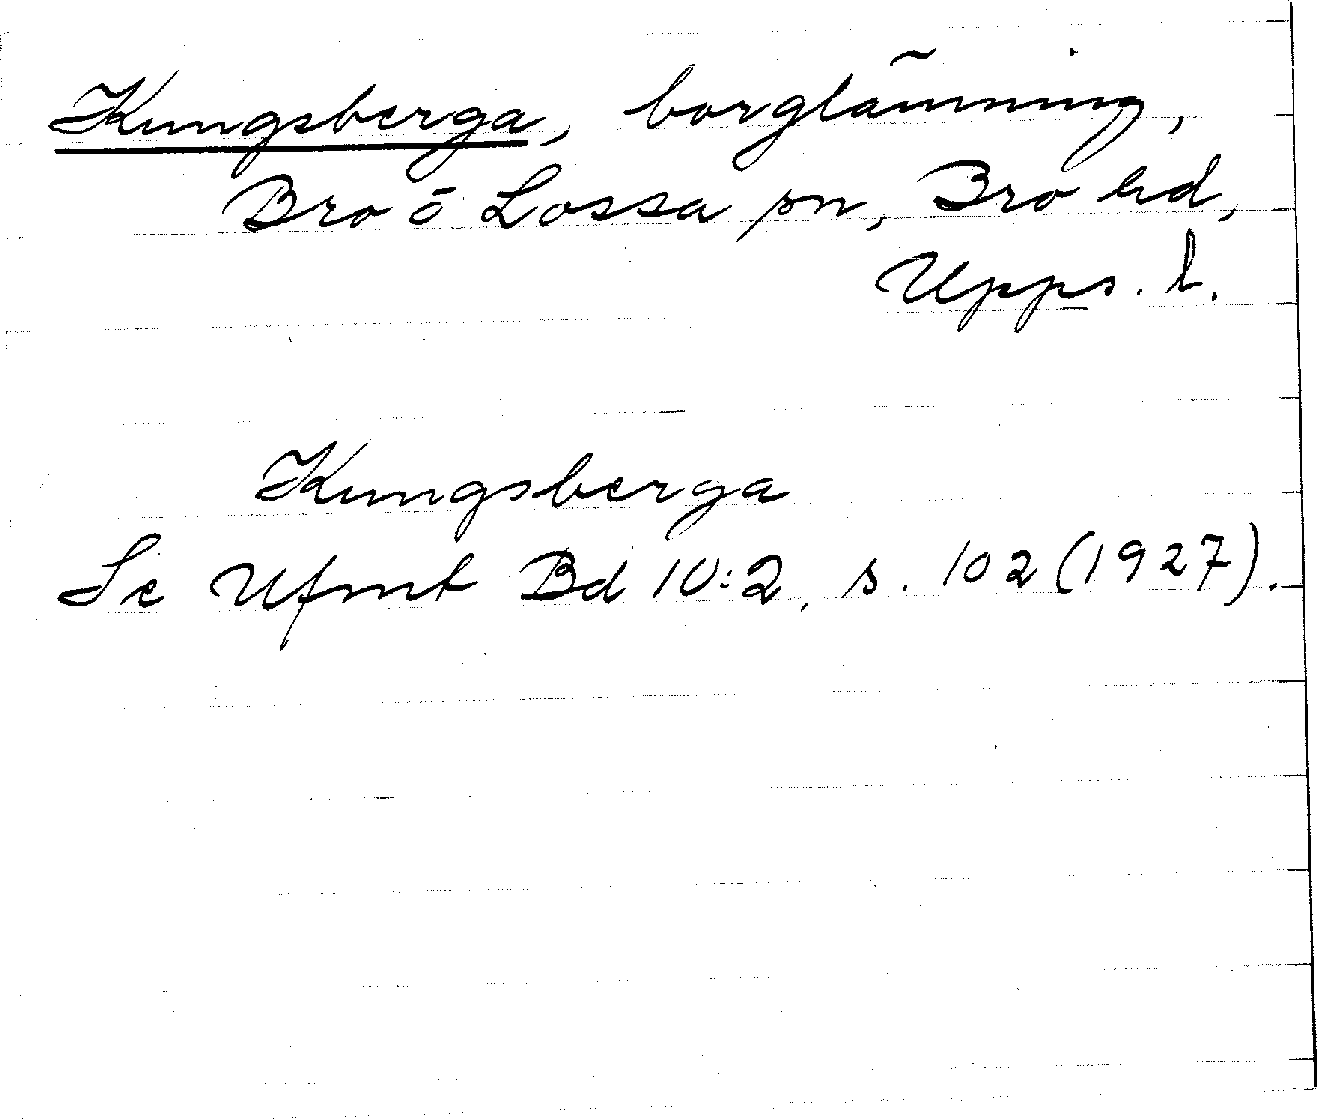 Kungsberga, borglämning,
Bro o Lossa sn, Bro hd,
Upps. l.
Kungsberga
Se Ufmt Bd 10:2, s. 102 (1927).